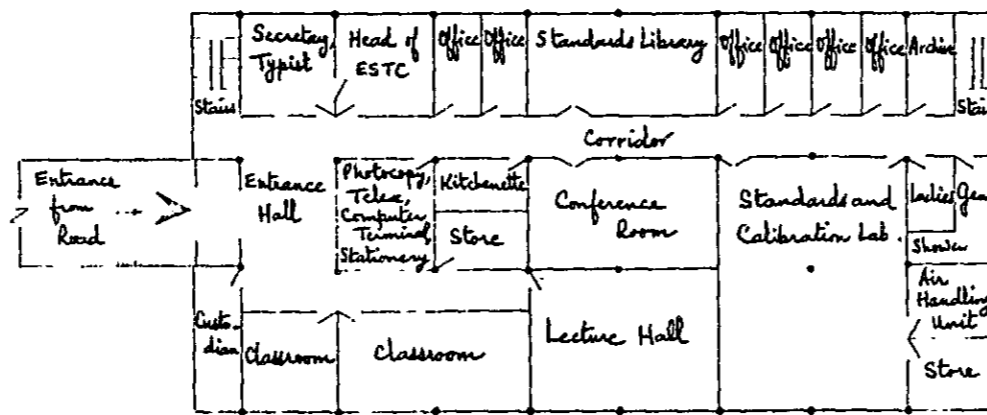 Secretary,
Typist
Head of
ESTC
Office
Office
Standards Library
Office
Office
Office
Office
Archive
Stairs
Stairs
Corridor
Entrance
from
Road
Entrance
Hall
Photocopy,
Telex,
Computer
Terminal,
Stationery
Kitchenette
Store
Conference
Room
Standards and
Calibration Lab.
Ladies
Shower
Air
Handling
Unit
Store
Custo-
dian
Classroom
Classroom
Lecture Hall